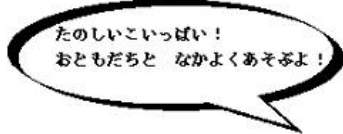 たのしいこいっぱい！
おともだちと　なかよくあそぶよ！